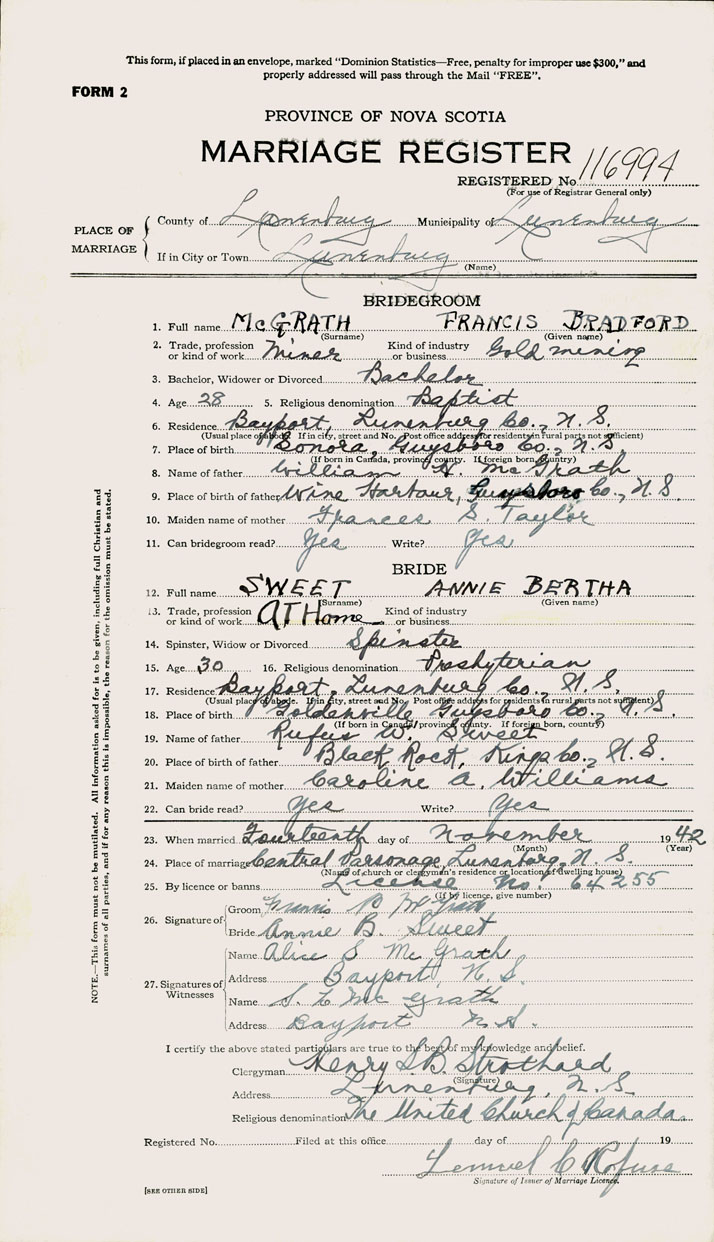 This form, if placed in an envelope, marked "Dominion Statistics—Free, penalty for improper use $300," and
properly addressed will pass through the Mail "FREE".
FORM 2
PROVINCE OF NOVA SCOTIA
MARRIAGE REGISTER
REGISTERED No 116994
(For use of Registrar General only)
PLACE OF MARRIAGE
County of Lunenburg Municipality of Lunenburg
If in City or Town Lunenburg
(Name)
BRIDEGROOM
1. Full name McGRATH FRANCIS BRADFORD
(Surname) (Given name)
2. Trade, profession or kind of work Miner Kind of industry or business Gold mining
3. Bachelor, Widower or Divorced Bachelor
4. Age 28 5. Religious denomination Baptist
6. Residence Bayport, Lunenburg Co., N.S.
(Usual place of abode. If in city, street and No. Post office address for residents in rural parts not sufficient)
7. Place of birth Sonora, Guysboro Co., N.S
(If born in Canada, province, county. If foreign born, country)
8. Name of father William H. McGrath
9. Place of birth of father Wine Harbour, Guysboro Co., N.S.
10. Maiden name of mother Frances S. Taylor
11. Can bridegroom read? Yes Write? Yes
BRIDE
12. Full name SWEET ANNIE BERTHA
(Surname) (Given name)
13. Trade, profession or kind of work AT Home Kind of industry or business
14. Spinster, Widow or Divorced Spinster
15. Age 30 16. Religious denomination Presbyterian
17. Residence Bayport, Lunenburg Co., N.S.
(Usual place of abode. If in city, street and No. Post office address for residents in rural parts not sufficient)
18. Place of birth Goldenville Guysboro Co., N.S.
(If born in Canada, province, county. If foreign born, country)
19. Name of father Rufus W. Sweet
20. Place of birth of father Black Rock, Kings Co., N.S.
21. Maiden name of mother Caroline A. Williams
22. Can bride read? Yes Write? Yes
23. When married Fourteenth day of November 1942
(Month) (Year)
24. Place of marriage Central Parsonage, Lunenburg, N.S.
(Name of church or clergyman's residence or location of dwelling house)
25. By licence or banns License No. 64255
(If by licence, give number)
26. Signature of
Groom Francis B McGrath
Bride Annie B. Sweet
27. Signatures of Witnesses
Name Alice S McGrath
Address Bayport, N.S.
Name S. L McGrath
Address Bayport N.S.
I certify the above stated particulars are true to the best of my knowledge and belief.
Clergyman Henry S.B. Strothard
(Signature)
Address Lunenburg, N.S.
Religious denomination The United Church of Canada.
Registered No. Filed at this office day of 19
Lemuel C Rofuse
Signature of Issuer of Marriage Licence.
[SEE OTHER SIDE]
NOTE.—This form must not be mutilated. All information asked for is to be given, including full Christian and
surnames of all parties, and if for any reason this is impossible, the reason for the omission must be stated.